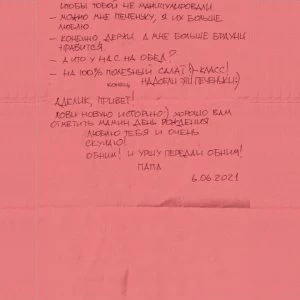 чтобы тобой не манипулировали
– можно мне печеньку, я их больше
люблю.
– конечно, держи. а мне больше брауни
нравится.
– а что у нас на обед?
– на 100% полезный салат :) – класс!
конец. надоели эти печеньки :)
привет!
лови новую историю :) хорошо вам
отметить мамин день рождения
люблю тебя и очень
скучаю!
обним! и Уршу передай обним!
папа
6.06.2021